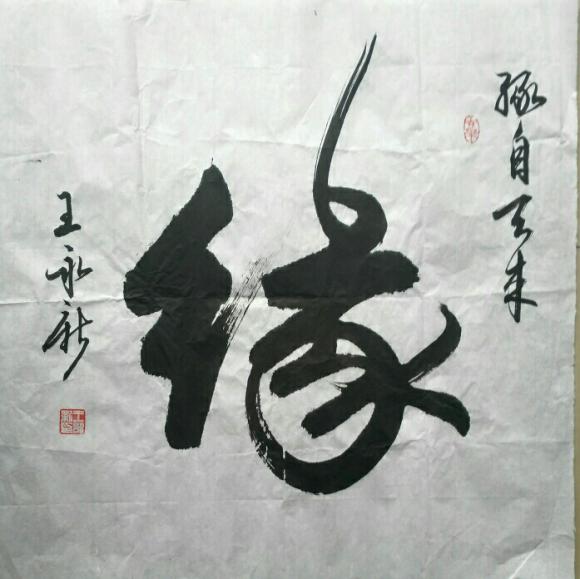 缘自天来
缘
王永新